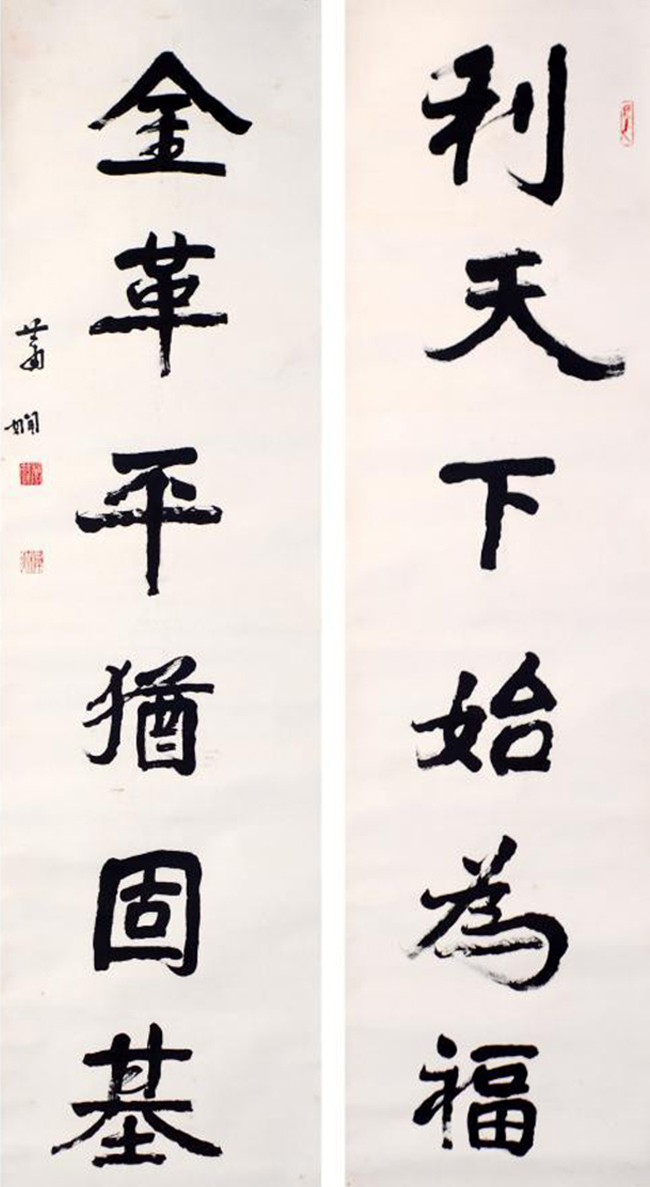 利天下始為福
金革平猶固基
蕭嫻